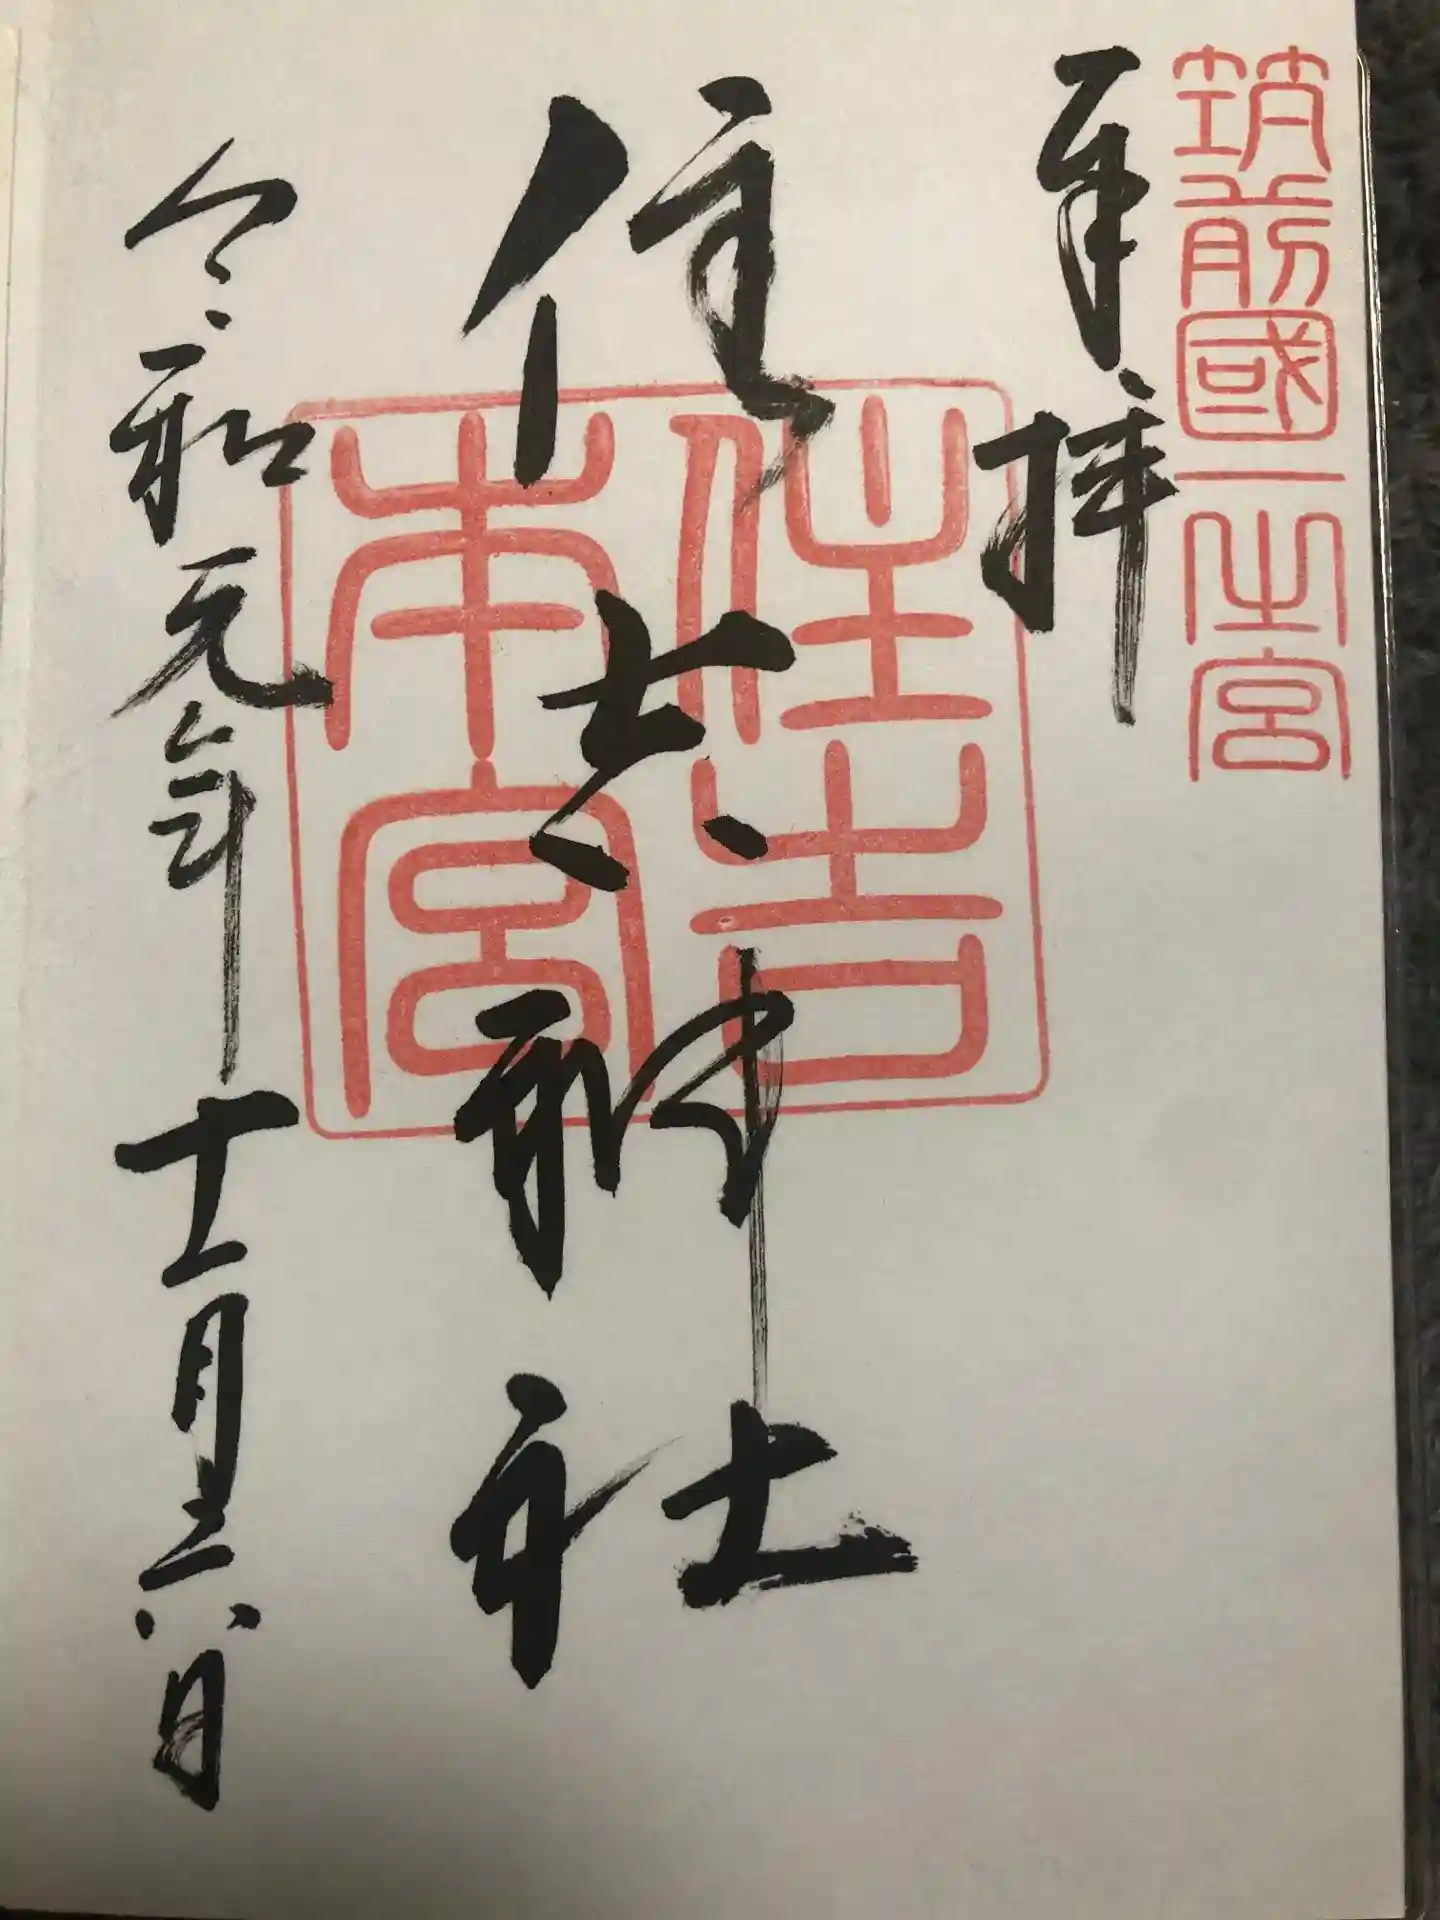 筑前國一之宮
奉拝
住吉神社
住吉
本宮
令和元年十一月六日